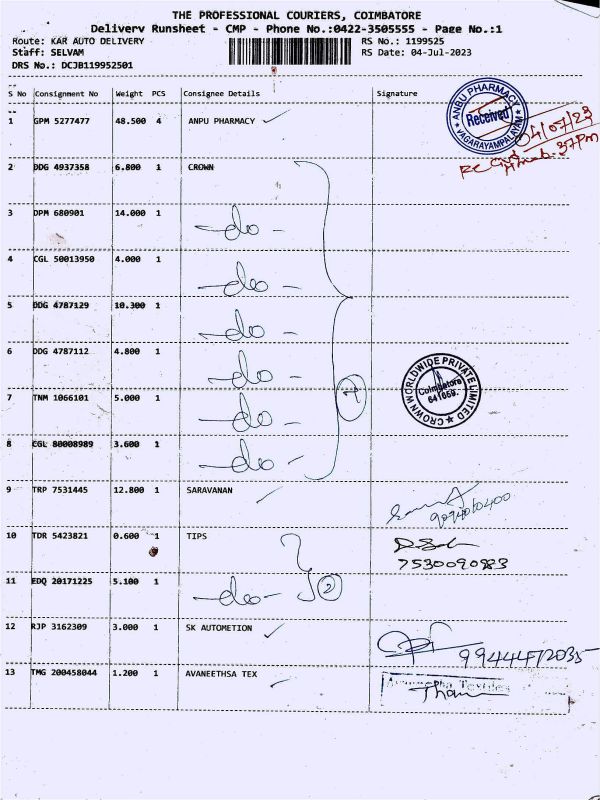 THE PROFESSIONAL COURIERS, COIMBATORE
Delivery Runsheet - CMP - Phone No.:0422-3505555 - Page No.:1
Route: KAR AUTO DELIVERY RS No.: 1199525
Staff: SELVAM RS Date: 04-Jul-2023
DRS No.: DCJB119952501
S No Consignment No Weight PCS Consignee Details Signature
1 GPM 5277477 48.500 4 ANPU PHARMACY
ANBU PHARMACY Received VAGARAYAMPALAYAM
04/07/23
2 DDG 4937358 6.800 1 CROWN
3 DPM 680901 14.000 1 -do-
4 CGL 50013950 4.000 1 -do-
5 DDG 4787129 10.300 1 -do-
6 DDG 4787112 4.800 1 -do-
7 TNM 1066101 5.000 1 -do-
8 CGL 80008989 3.600 1 -do-
7
CROWN WORLDWIDE PRIVATE LIMITED Coimbatore 641659.
9 TRP 7531445 12.800 1 SARAVANAN
10 TDR 5423821 0.600 1 TIPS
7530090983
11 EDQ 20171225 5.100 1 -do- 2
12 RJP 3162309 3.000 1 SK AUTOMETION
13 TMG 200458044 1.200 1 AVANEETHSA TEX